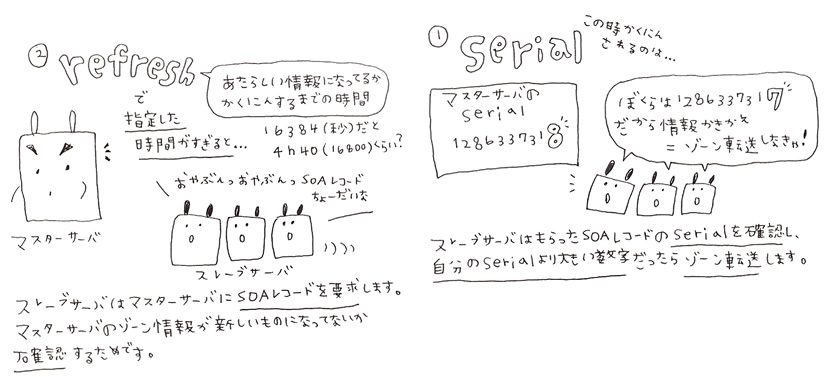 ② refresh
あたらしい情報になってるか
かくにんするまでの時間
で
指定した
時間がすぎると…
16384(秒)だと
4h40(16800)くらい?
おやぶんっおやぶんっSOAレコード
ちょーだいな
マスターサーバ
スレーブサーバ
スレーブサーバはマスターサーバにSOAレコードを要求します。
マスターサーバのゾーン情報が新しいものになってないか
確認するためです。
① serial
この時かくにん
されるのは…
マスターサーバの
serial
1286337318
ぼくらは1286337317
だから情報かきかえ
=ゾーン転送しなきゃ!
スレーブサーバはもらったSOAレコードのserialを確認し、
自分のserialより大きい数字だったらゾーン転送します。